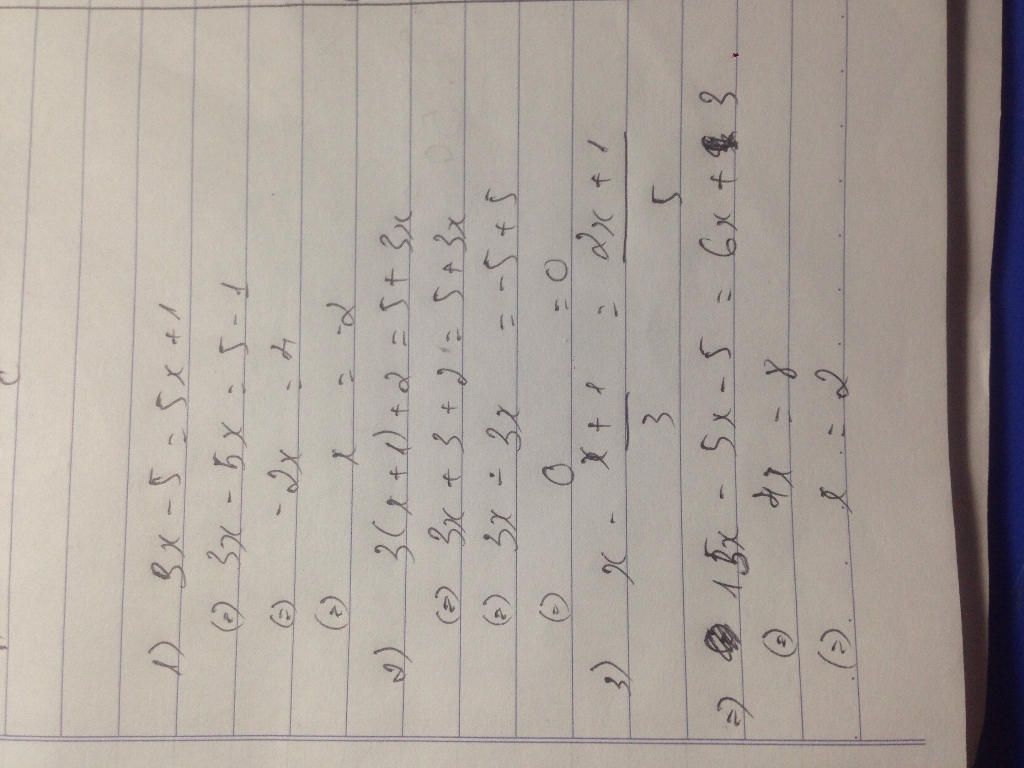 1) 3x - 5 = 5x + 1
(=) 3x - 5x = 5 - 1
(=) - 2x = 4
(=) x = -2
2) 3(x + 1) + 2 = 5 + 3x
(=) 3x + 3 + 2 = 5 + 3x
(=) 3x - 3x = -5 + 5
(=) 0 = 0
3) x - x + 1 / 3 = 2x + 1 / 5
=) 15x - 5x - 5 = 6x + 3
(=) 4x = 8
(=) x = 2